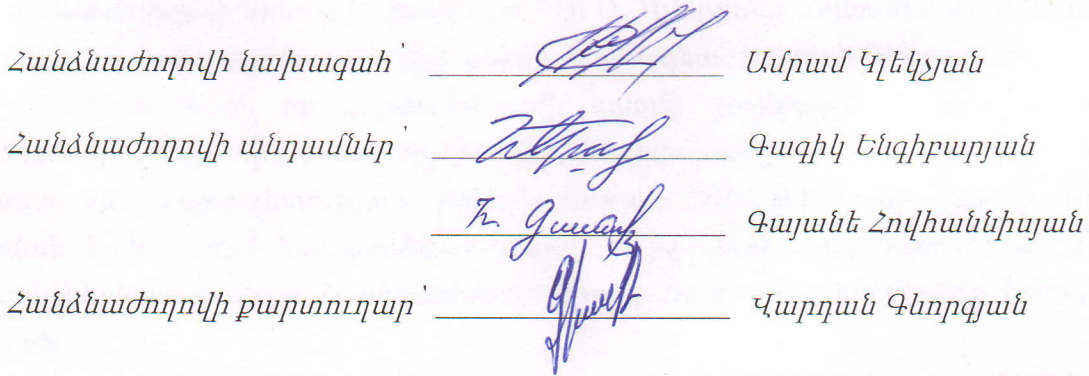 Հանձնաժողովի նախագահ՝ Ամրամ Կլեկչյան
Հանձնաժողովի անդամներ՝ Գագիկ Ենգիբարյան
Գայանե Հովհաննիսյան
Հանձնաժողովի քարտուղար՝ Վարդան Գևորգյան